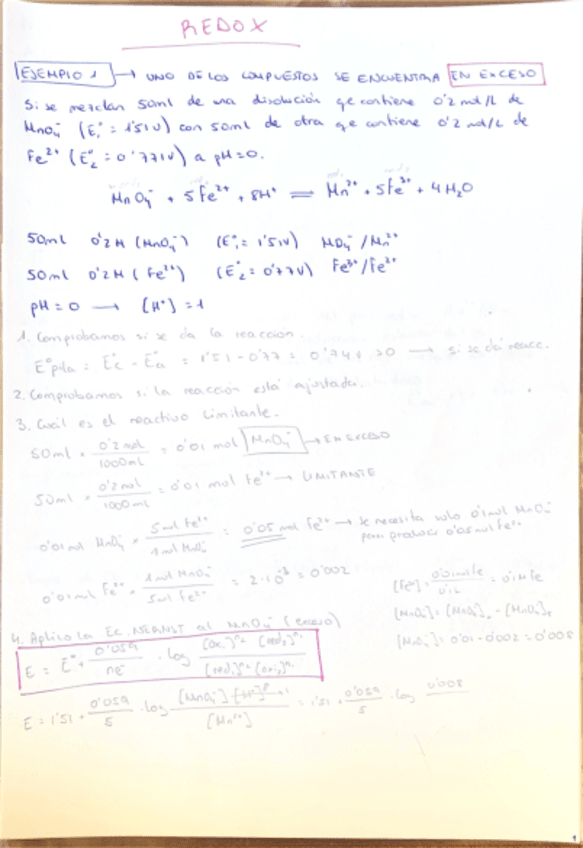 REDOX
EJEMPLO 1 → UNO DE LOS COMPUESTOS SE ENCUENTRA EN EXCESO
Si se mezclan 50ml de una disolución qe contiene 0'2 mol/L de
MnO₄⁻ (E°₁ = 1'51V) con 50ml de otra qe contiene 0'2 mol/L de
Fe²⁺ (E°₂ = 0'771V) a pH=0.
MnO₄⁻ + 5Fe²⁺ + 8H⁺ = Mn²⁺ + 5Fe³⁺ + 4H₂O
50ml 0'2M (MnO₄⁻) (E°₁ = 1'51V) MnO₄⁻/Mn²⁺
50ml 0'2M (Fe²⁺) (E°₂ = 0'77V) Fe³⁺/Fe²⁺
pH = 0 → [H⁺] = 1
1. Comprobamos si se da la reacción.
E°pila = E°c - E°a = 1'51 - 0'77 = 0'74V > 0 → si se da reacc.
2. Comprobamos si la reacción está ajustada.
3. Cuál es el reactivo limitante.
50ml × 0'2 mol / 1000ml = 0'01 mol MnO₄⁻ → EN EXCESO
50ml × 0'2 mol / 1000ml = 0'01 mol Fe²⁺ → LIMITANTE
0'01 mol MnO₄⁻ × 5 mol Fe²⁺ / 1 mol MnO₄⁻ = 0'05 mol Fe²⁺ → Se necesita solo 0'1 mol MnO₄⁻
para producir 0'05 mol Fe²⁺
0'01 mol Fe²⁺ × 1 mol MnO₄⁻ / 5 mol Fe²⁺ = 2·10⁻³ = 0'002
= 0'1M Fe
[MnO₄⁻] = [MnO₄⁻]₀ - [MnO₄⁻]
[MnO₄⁻] = 0'01 - 0'002 = 0'008
4. Aplico la Ec. NERNST al MnO₄⁻ (exceso)
E = E° + 0'059 / ne⁻ · log
E = 1'51 + 0'059 / 5 · log [MnO₄⁻][H⁺]⁸ / [Mn²⁺] = 1'51 + 0'059 / 5 · log 0'008
1